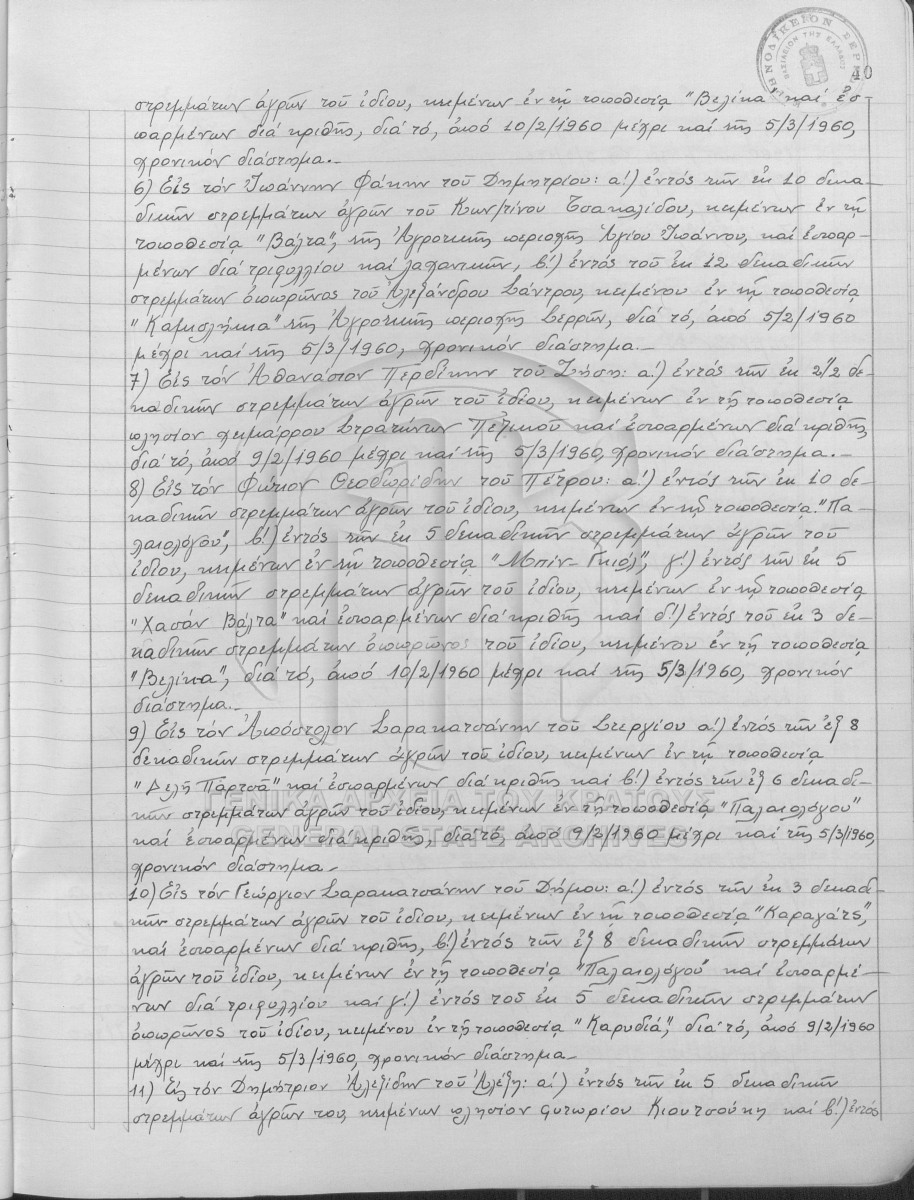 ΕΙΡΗΝΟΔΙΚΕΙΟΝ ΣΕΡΡ
ΒΑΣΙΛΕΙΟΝ ΤΗΣ ΕΛΛΑΔΟΣ
10
στρεμμάτων ἀγρῶν τοῦ ἰδίου, κειμένων ἐν τῇ τοποθεσίᾳ "Βελίκα" καί ἐσ-
παρμένων διά κριθῆς, διά τό, ἀπό 10/2/1960 μέχρι καί τῆς 5/3/1960,
χρονικόν διάστημα.-
6) Εἰς τόν Ἰωάννην Φάκην τοῦ Δημητρίου: α!) ἐντός τῶν ἐκ 10 δεκα-
δικῶν στρεμμάτων ἀγρῶν τοῦ Κων/τίνου Τσακαλίδου, κειμένων ἐν τῇ
τοποθεσίᾳ "Βάλτα", τῆς Ἀγροτικῆς περιοχῆς Ἁγίου Ἰωάννου, καί ἐσπαρ-
μένων διά τριφυλλίου καί λαχανικῶν, β!) ἐντός τοῦ ἐκ 12 δεκαδικῶν
στρεμμάτων ὀπωρῶνος τοῦ Ἀλεξάνδρου Σάντρου, κειμένου ἐν τῇ τοποθεσίᾳ
"Καμηλήκια" τῆς Ἀγροτικῆς περιοχῆς Σερρῶν, διά τό, ἀπό 5/2/1960
μέχρι καί τῆς 5/3/1960, χρονικόν διάστημα.-
7) Εἰς τόν Ἀθανάσιον Περδίκην τοῦ Ζήση: α!) ἐντός τῶν ἐκ 2 1/2 δε-
καδικῶν στρεμμάτων ἀγρῶν τοῦ ἰδίου, κειμένων ἐν τῇ τοποθεσίᾳ
πλησίον χειμάρρου Στρατώνων Πεζικοῦ καί ἐσπαρμένων διά κριθῆς
διά τό, ἀπό 9/2/1960 μέχρι καί τῆς 5/3/1960, χρονικόν διάστημα.-
8) Εἰς τόν Φώτιον Θεοδωρίδην τοῦ Πέτρου: α!) ἐντός τῶν ἐκ 10 δε-
καδικῶν στρεμμάτων ἀγρῶν τοῦ ἰδίου, κειμένων ἐν τῇ τοποθεσίᾳ "Πα-
λαιολόγου", β!) ἐντός τῶν ἐκ 5 δεκαδικῶν στρεμμάτων ἀγρῶν τοῦ
ἰδίου, κειμένων ἐν τῇ τοποθεσίᾳ "Μπίν-Γκιόλ", γ!) ἐντός τῶν ἐκ 5
δεκαδικῶν στρεμμάτων ἀγρῶν τοῦ ἰδίου, κειμένων ἐν τῇ τοποθεσίᾳ
"Χασάν Βάλτα" καί ἐσπαρμένων διά κριθῆς καί δ!) ἐντός τοῦ ἐκ 3 δε-
καδικῶν στρεμμάτων ὀπωρῶνος τοῦ ἰδίου, κειμένου ἐν τῇ τοποθεσίᾳ
"Βελίκα", διά τό, ἀπό 10/2/1960 μέχρι καί τῆς 5/3/1960, χρονικόν
διάστημα.-
9) Εἰς τόν Ἀπόστολον Σαρακατσάνην τοῦ Στεργίου α!) ἐντός τῶν ἐξ 8
δεκαδικῶν στρεμμάτων ἀγρῶν τοῦ ἰδίου, κειμένων ἐν τῇ τοποθεσίᾳ
"Δελῆ Πάρτσα" καί ἐσπαρμένων διά κριθῆς καί β!) ἐντός τῶν ἐξ 6 δεκαδι-
κῶν στρεμμάτων ἀγρῶν τοῦ ἰδίου, κειμένων ἐν τῇ τοποθεσίᾳ "Παλαιολόγου"
καί ἐσπαρμένων διά κριθῆς, διά τό, ἀπό 9/2/1960 μέχρι καί τῆς 5/3/1960,
χρονικόν διάστημα.-
10) Εἰς τόν Γεώργιον Σαρακατσάνην τοῦ Δήμου: α!) ἐντός τῶν ἐκ 3 δεκαδι-
κῶν στρεμμάτων ἀγρῶν τοῦ ἰδίου, κειμένων ἐν τῇ τοποθεσίᾳ "Καραγάτς",
καί ἐσπαρμένων διά κριθῆς, β!) ἐντός τῶν ἐξ 8 δεκαδικῶν στρεμμάτων
ἀγρῶν τοῦ ἰδίου, κειμένων ἐν τῇ τοποθεσίᾳ "Παλαιολόγου" καί ἐσπαρμέ-
νων διά τριφυλλίου καί γ!) ἐντός τοῦ ἐκ 5 δεκαδικῶν στρεμμάτων
ὀπωρῶνος τοῦ ἰδίου, κειμένου ἐν τῇ τοποθεσίᾳ "Καρυδιά", διά τό, ἀπό 9/2/1960
μέχρι καί τῆς 5/3/1960, χρονικόν διάστημα.-
11) Εἰς τόν Δημήτριον Ἀλεξίδην τοῦ Ἀλέξη: α!) ἐντός τῶν ἐκ 5 δεκαδικῶν
στρεμμάτων ἀγρῶν του, κειμένων πλησίον φυτωρίου Κιουτσούκη καί β!) ἐντός
ΓΕΝΙΚΑ ΑΡΧΕΙΑ ΤΟΥ ΚΡΑΤΟΥΣ
GENERAL STATE ARCHIVES